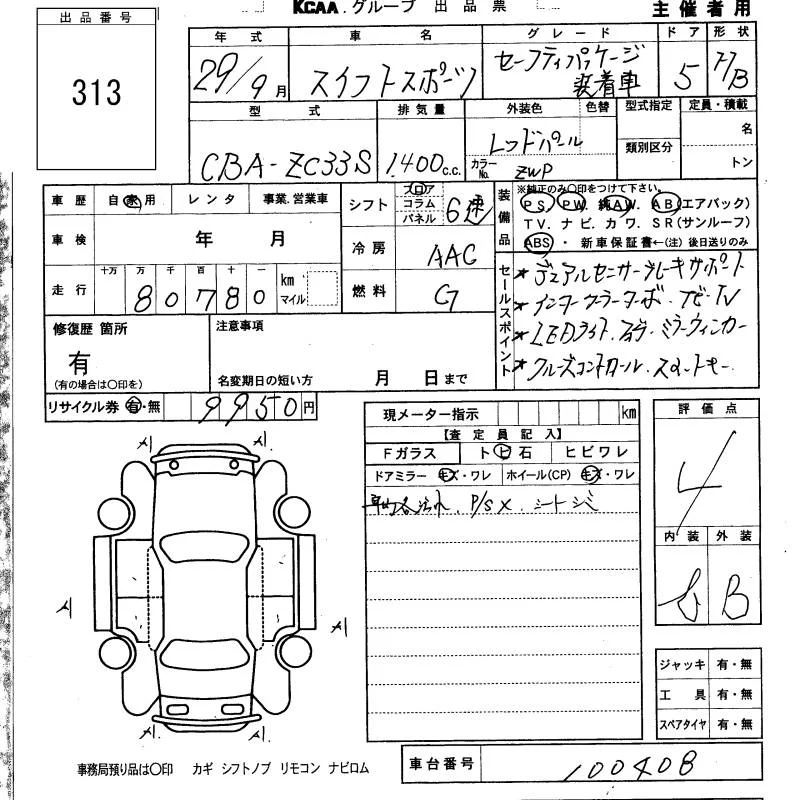 KCAA.グループ 出品票
主催者用
出品番号
313
年式 車名 グレード ドア 形状
29/9月 スイフトスポーツ セーフティパッケージ装着車 5 H/B
型式 排気量 外装色 色替 型式指定 定員・積載
CBA-ZC33S 1.400c.c. レッドパール
カラーNo. ZWP
類別区分
名
トン
車歴 自家用 レンタ 事業.営業車
車検 年 月
走行 十万 万 千 百 十 一 km マイル
80780
シフト フロア コラム パネル 6速
冷房 AAC
燃料 G
装備品
※純正のみ○印をつけて下さい。
PS. PW. 純AW. AB(エアバック)
TV. ナビ. カワ. SR(サンルーフ)
ABS ・ 新車保証書←(注)後日送りのみ
セールスポイント
* デュアルセンサーブレーキサポート
* インタークーラーターボ・ナビ・TV
* LEDライト. ミラーウィンカー
* クルーズコントロール. スマートキー
修復歴 箇所
有
(有の場合は○印を)
注意事項
名変期日の短い方 月 日まで
リサイクル券 有・無 9950円
現メーター指示 km
【査定員記入】
Fガラス トビ石 ヒビワレ
ドアミラー キズ・ワレ ホイール(CP) キズ・ワレ
P/S X. シートシミ
評価点
4
内装 外装
B
A1 A1
A1 A1
A1 A1
ジャッキ 有・無
工具 有・無
スペアタイヤ 有・無
事務局預り品は○印 カギ シフトノブ リモコン ナビロム
車台番号 100408